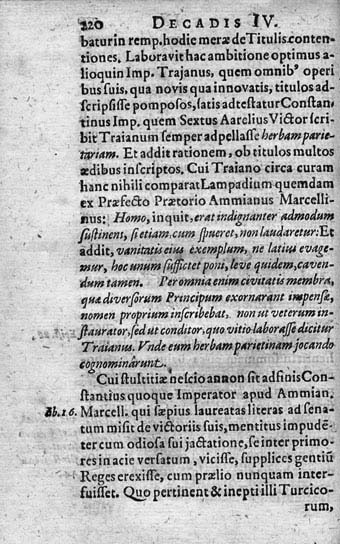 220 DECADIS IV.
batur in remp. hodie meræ de Titulis conten-
tiones. Laboravit hac ambitione optimus a-
lioquin Imp. Trajanus, quem omnib' operi
bus suis, qua novis qua innovatis, titulos ad-
scripsisse pomposos, satis adtestatur Constan-
tinus Imp. quem Sextus Aurelius Victor scri
bit Traianum semper adpellasse herbam parie-
tariam. Et addit rationem, ob titulos multos
ædibus inscriptos. Cui Traiano circa curam
hanc nihili comparat Lampadium quemdam
ex Præfecto Prætorio Ammianus Marcelli-
nus: Homo, inquit, erat indignanter admodum
sustinens, si etiam, cum spueret, non laudaretur: Et
addit, vanitatis eius exemplum, ne latius evage-
mur, hoc unum sufficiet poni, leve quidem, caven-
dum tamen. Per omnia enim civitatis membra,
quæ diversorum Principum exornarant impensæ,
nomen proprium inscribebat, non ut veterum in-
staurator, sed ut conditor, quo vitio laborasse dicitur
Traianus. Vnde eum herbam parietinam jocando
cognominârunt.
Cui stultitiæ nescio annon sit adfinis Con-
stantius quoque Imperator apud Ammian.
lib. 16. Marcell. qui sæpius laureatas literas ad sena-
tum misit de victoriis suis, mentitus impudē-
ter cum odiosa sui jactatione, se inter primo-
res in acie versatum, vicisse, supplices gentiū
Reges erexisse, cum prælio nunquam inter-
fuisset. Quo pertinent & inepti illi Turcico-
rum,